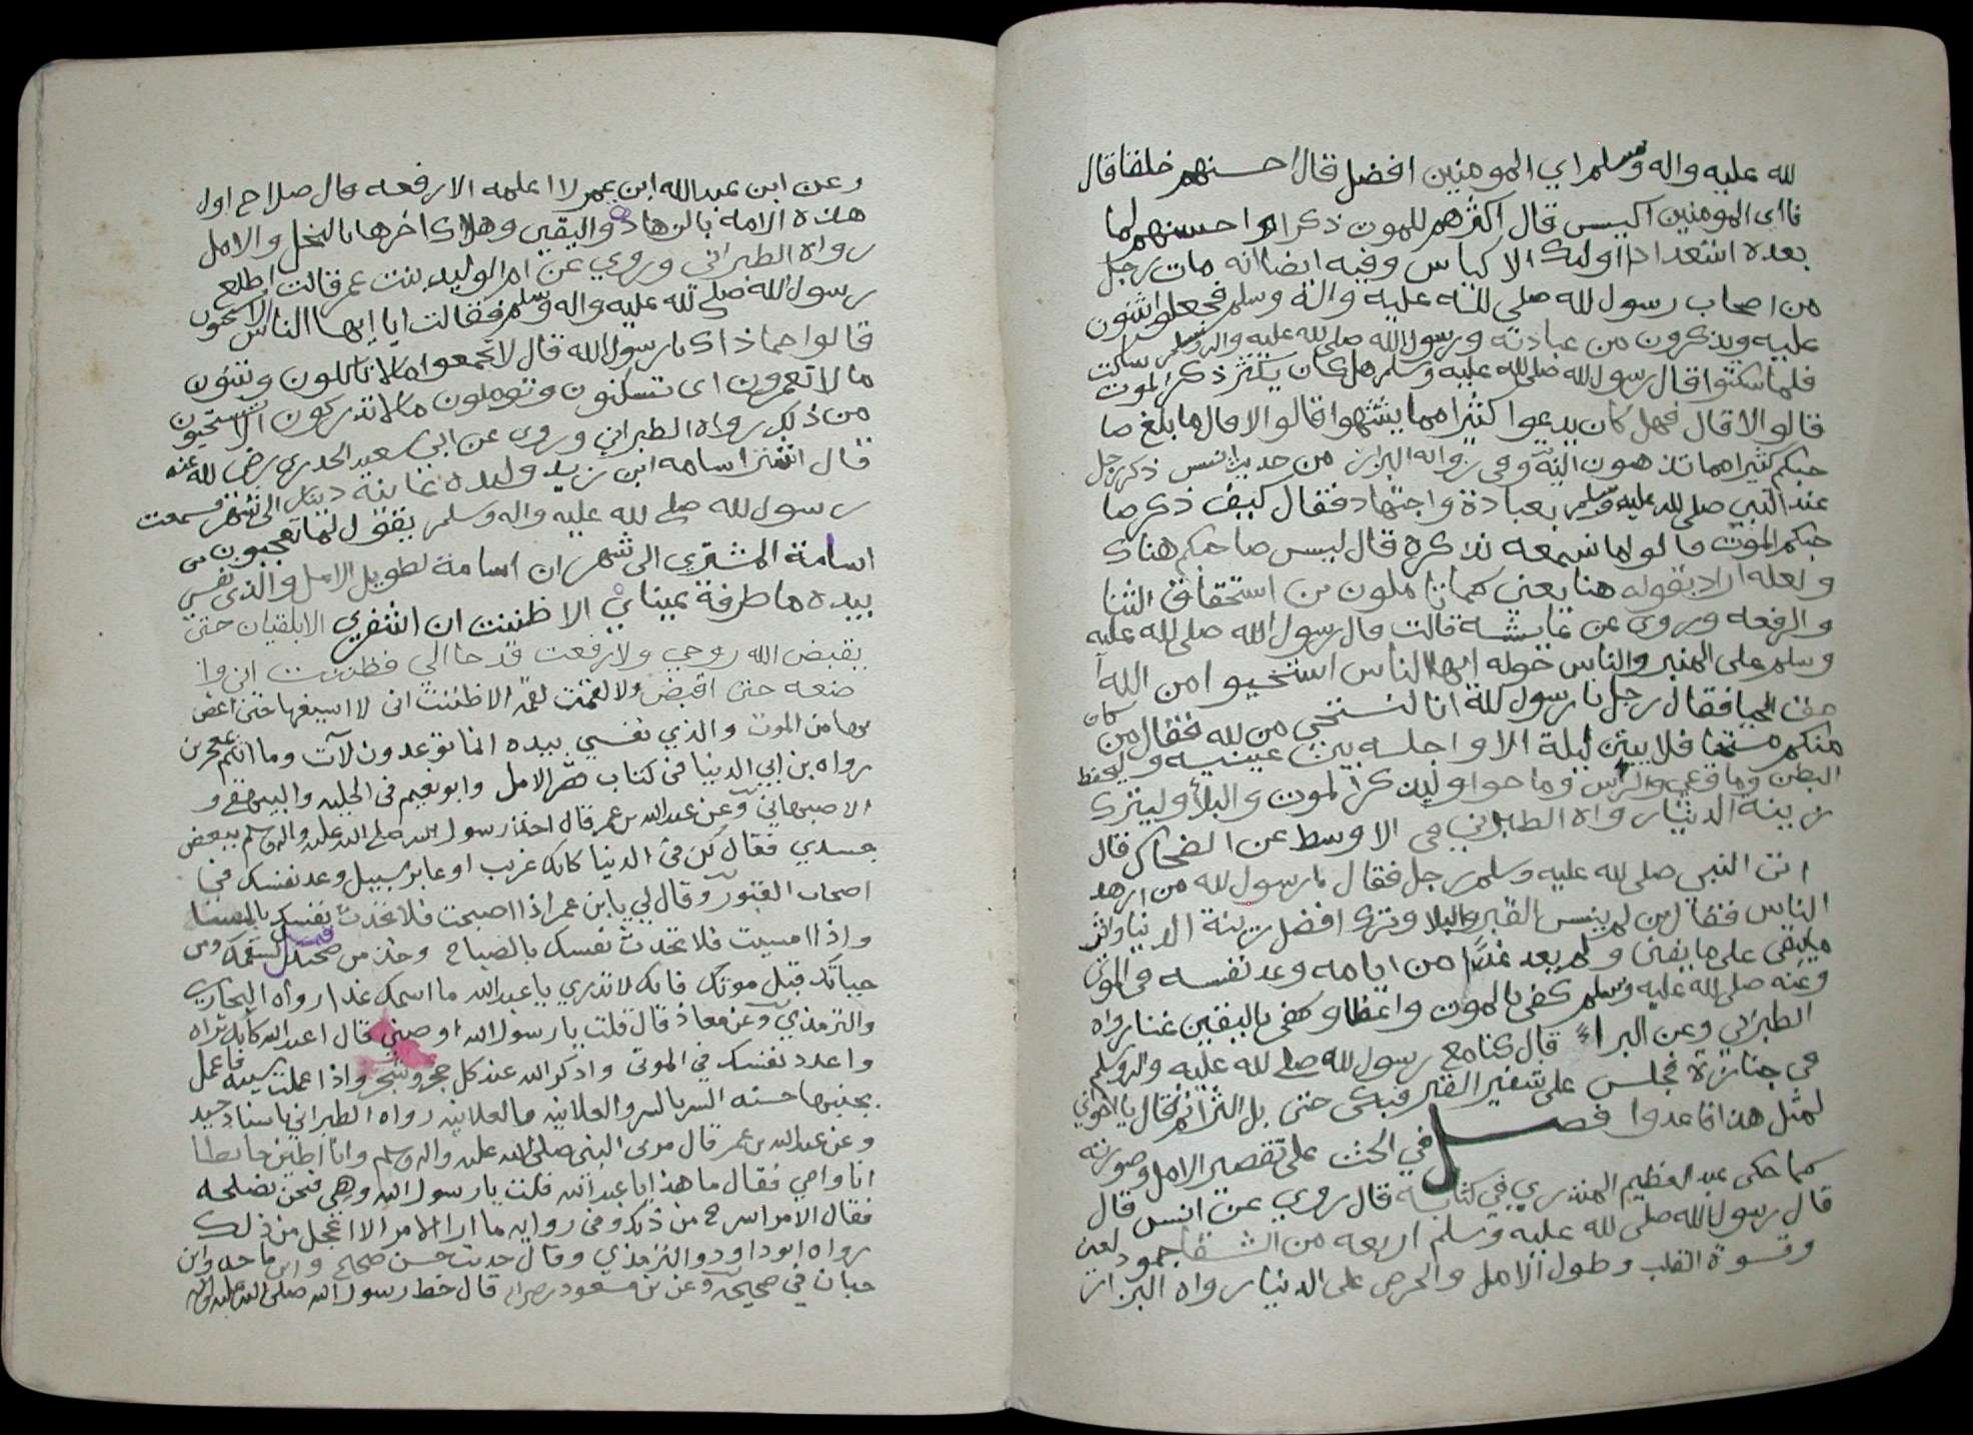 لله عليه واله وسلم اي المومنين افضل قال احسنهم خلقا قال
فاى المومنين اكيس قال اكثرهم للموت ذكرا واحسنهم لما
بعده استعدادا اولئك الاكياس وفيه ايضا انه مات رجل
من اصحاب رسول لله صلى لله عليه واله وسلم فجعلوا يثنون
عليه ويذكرون من عبادته ورسول الله صلى لله عليه واله وسلم ساكت
فلما سكتوا قال رسول لله صلى لله عليه وسلم هل كان يكثر ذكر الموت
قالو الا قال فهل كان يدعوا كثيرا مما يشتهوا قالو الا قال ما بلغ صا
حبكم كثيرا مما تذهبون اليه وفي رواه البزار من حديث انس ذكر رجل
عند النبي صلى لله عليه وسلم بعبادة واجتهاد فقال كيف ذكر صا
حبكم الموت قالو اما نسمعه يذكره قال ليس صاحبكم هناك
ولعله اراد بقوله هنا يعني كما تاملون من استحقاق الثنا
والرفعه وروى عن عايشه قالت قال رسول الله صلى لله عليه
وسلم على المنبر والناس حوله ايها الناس استحيوا من الله
حق الحيا فقال رجل يا رسول لله انا لنستحي من لله فقال من كان
منكم مستحيا فلا يبيتن ليلة الا واجله بين عينيه وليحفظ
البطن وما وعى والراس وما حوا وليذكر الموت والبلأ وليترك
زينة الدنيا رواه الطبراني في الاوسط عن الضحاك قال
اتى النبي صلى لله عليه وسلم رجل فقال يا رسول لله من ازهد
الناس فقال من لم ينس القبر والبلا وترك افضل زينة الدنيا واثر
ما يبقى على ما يفنى ولم يعد غدا من ايامه وعد نفسه في الموتى
وعنه صلى لله عليه وسلم كفى بالموت واعظا وكفى باليقين غنا رواه
الطبراني وعن البراء قال كنا مع رسول لله صلى لله عليه واله وسلم
في جنازة فجلس على شفير القبر فبكى حتى بل الثرا ثم قال يا اخواني
لمثل هذا فاعدوا فصل في الحث على تقصير الامل وصورته
كما حكى عبد العظيم المنذري في كتابه قال روي عن انس قال
قال رسول الله صلى لله عليه وسلم اربعه من الشقا جمود العين
وقسوة القلب وطول الامل والحرص على الدنيا رواه البزار
وعن ابن عبد الله ابن عمر لا اعلمه الا رفعه قال صلاح اول
هذه الامه بالزهاد واليقين وهلاك اخرها بالبخل والامل
رواه الطبراني وروي عن ام الوليد بنت عمر قالت اطلع
رسول الله صلى لله عليه واله وسلم فقالت ايا ايها الناس الا تستحيون
قالوا مما ذاك يا رسول الله قال لا تجمعوا ما لا تاكلون وتبنون
ما لا تعمرون اى تسكنون وتوملون ما لا تدركون الا تستحيون
من ذلك رواه الطبراني وروى عن ابي سعيد الخدري رضى لله عنه
قال اشترا اسامه ابن زيد وليده بماية دينار الى شهر فسمعت
رسول لله صلى لله عليه واله وسلم يقول لما تعجبون من
اسامة المشتري الى شهر ان اسامة لطويل الامل والذى نفسي
بيده ما طرفة عيناي الا ظننت ان اشفري لا يلتقيان حتى
يقبض الله روحي ولا رفعت قدحا الي فظننت اني وا
ضعه حتى اقبض ولا لقمت لقمه الا ظننت اني لا اسيغها حتى اغص
بها من الموت والذي نفسي بيده انما توعدون لآت وما انتم بمعجزين
رواه بن ابي الدنيا في كتاب قصر الامل وابو نعيم في الحليه والبيهقي و
الاصبهاني وعن عبد الله بن عمر قال اخذ رسول لله صلى الله عليه واله وسلم ببعض
جسدي فقال كن في الدنيا كانك غريب او عابر سبيل وعد نفسك في
اصحاب القبور وقال لي يا بن عمر اذا اصبحت فلا تحدث نفسك بالمسا
واذا امسيت فلا تحدث نفسك بالصباح وخذ من صحتك قبل سقمك ومن
حياتك قبل موتك فانك لا تدري يا عبد الله ما اسمك غدا رواه البخاري
والترمذي وعن معاذ قال قلت يا رسول الله اوصني قال اعبد الله كانك تراه
واعدد نفسك في الموتى واذكر الله عند كل حجر وشجر واذا عملت سيئه فاعمل
بجنبها حسنه السر بالسر والعلانيه بالعلانيه رواه الطبراني باسناد جيد
وعن عبد الله بن عمر قال مر بي النبي صلى الله عليه واله وسلم وانا اطين حايطا
انا وامي فقال ما هذا يا عبد الله قلت يا رسول الله وهي فنحن نصلحه
فقال الامر اسرع من ذلك وفي روايه ما ارا الامر الا اعجل من ذلك
رواه ابو داود والترمذي وقال حديث حسن صحيح وابن ماجه وابن
حبان في صحيحه وعن بن مسعود قال خط رسول الله صلى الله عليه واله